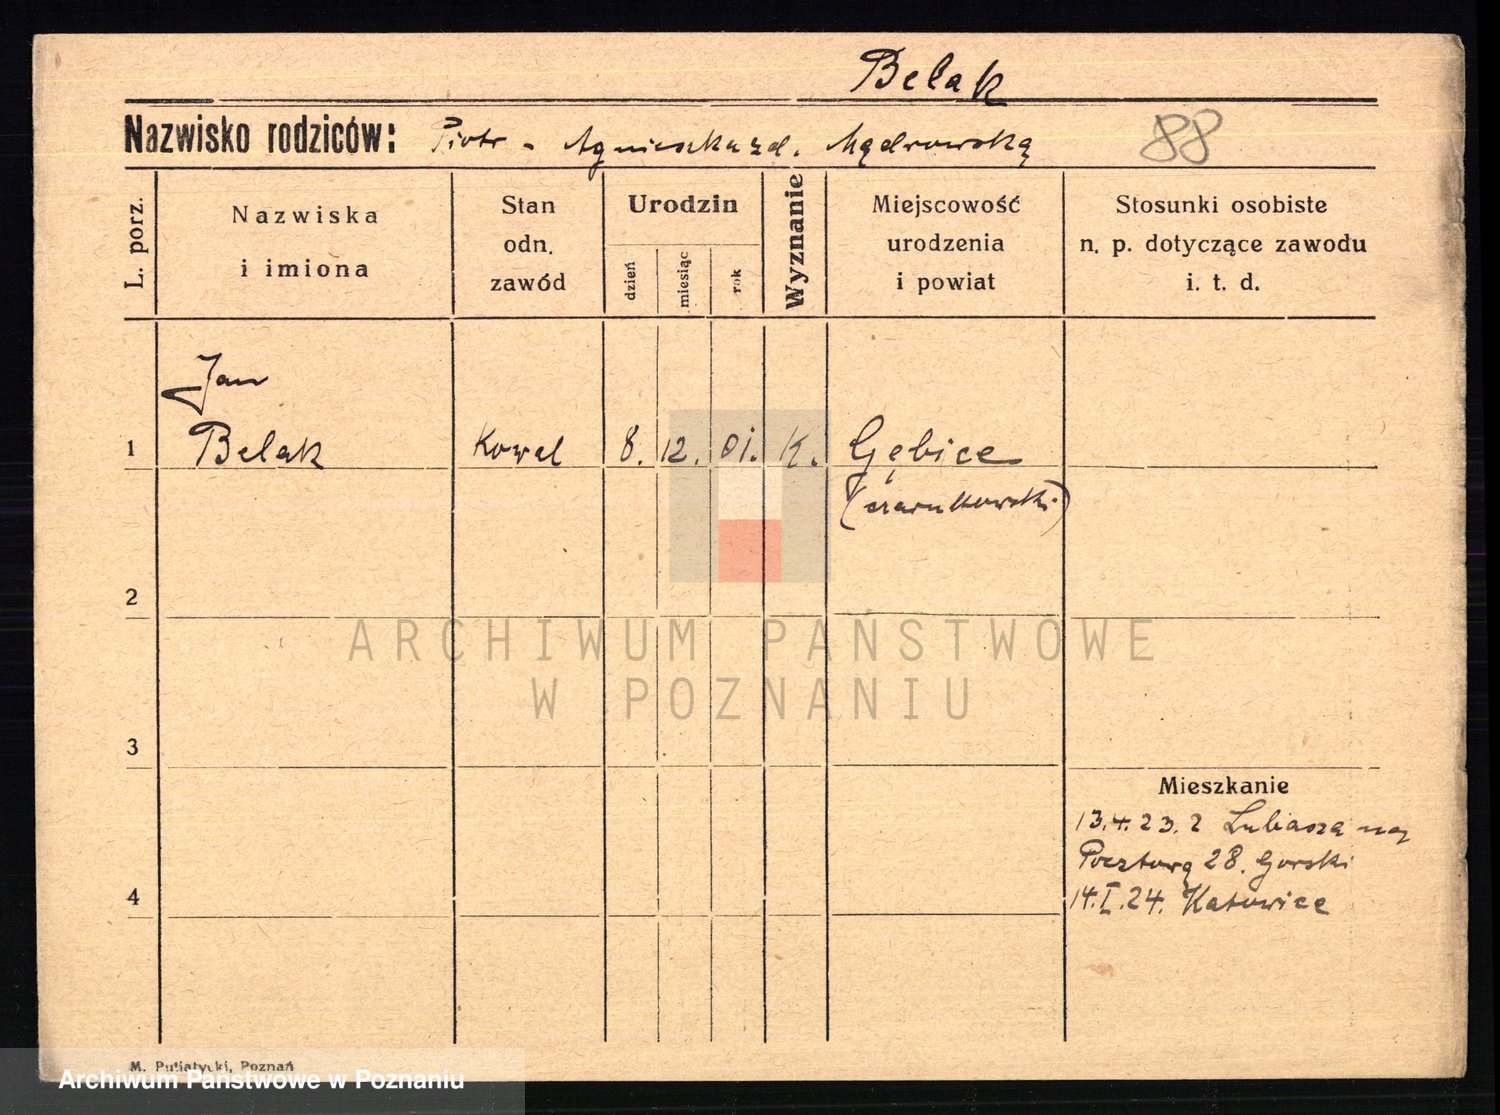 Belak
Nazwisko rodziców: Piotr - Agnieszka zd. Mądrowską 88
L. porz.
Nazwiska
i imiona
Stan
odn.
zawód
Urodzin
dzień
miesiąc
rok
Wyznanie
Miejscowość
urodzenia
i powiat
Stosunki osobiste
n. p. dotyczące zawodu
i. t. d.
Jan
1 Belak Kowal 8. 12. 01. K. Gębice
(czarnkowski)
2
ARCHIWUM PAŃSTWOWE
W POZNANIU
3
Mieszkanie
13.4.23. z Lubasza na
Pocztową 28. Gorski
4 14.I.24. Katowice
M. Putiatycki, Poznań
Archiwum Państwowe w Poznaniu